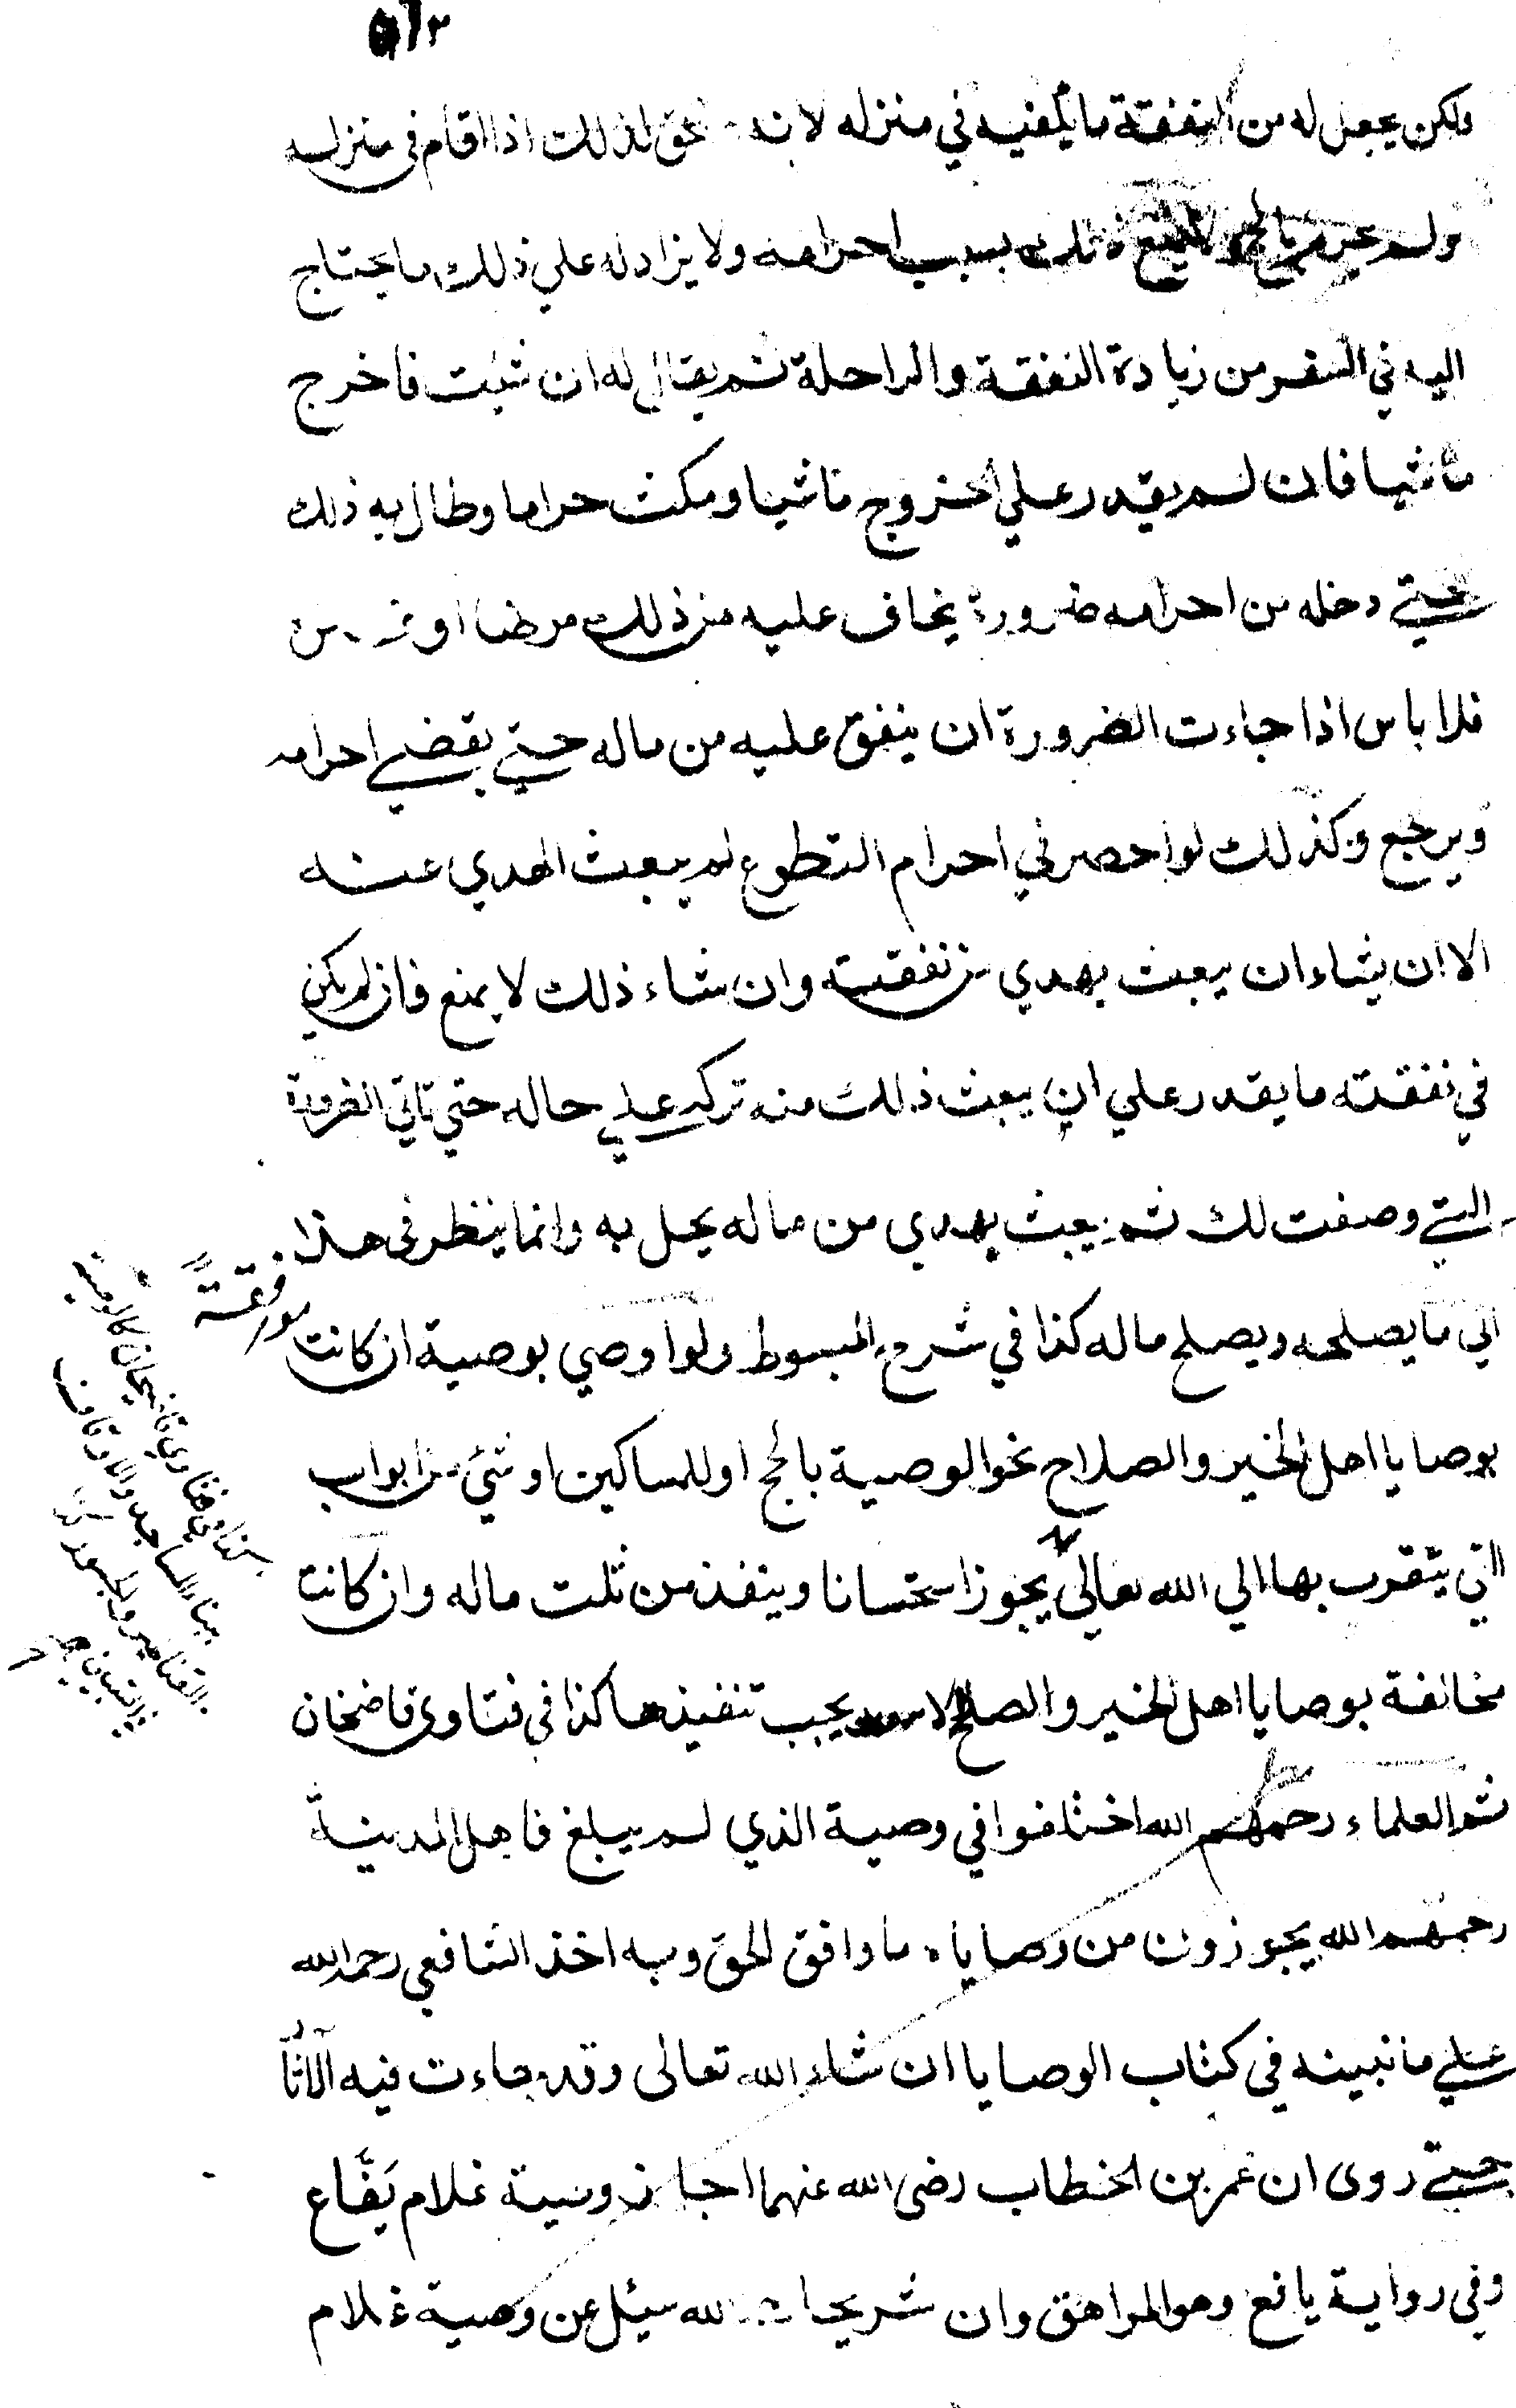 ولكن يجعل له من النفقة ما يكفيه في منزله لانه لذلك اذا اقام في منزله
ولم ذلك بسبب احرامه ولا يزاد له علي ذلك ما يحتاج
اليه في السفر من زيادة النفقة والراحلة ثم يقال له ان شئت فاخرج
ماشيا فان لم يقدر علي الخروج ماشيا ومكث حراما وطال به ذلك
حتي دخله من احرامه ضرورة يخاف عليه من ذلك مرضا او
فلا باس اذا جاءت الضرورة ان ينفق عليه من ماله حتي يقضي احرامه
ويرجع وكذلك لو احصر في احرام التطوع لم يبعث الهدي عنه
الا ان يشاء ان يبعث بهدي من نفقته وان شاء ذلك لا يمنع فان لم يكن
في نفقته ما يقدر علي ان يبعث ذلك منه تركه علي حاله حتي تاتي الضرورة
التي وصفت لك ثم يبعث بهدي من ماله يحل به وانما ينظر في هذا
الي ما يصلحه ويصلح ماله كذا في شرح المبسوط ولو اوصي بوصية ان كانت
موافقة
بوصايا اهل الخير والصلاح نحو الوصية بالحج او للمساكين او شيء من ابواب
التي يتقرب بها الي الله تعالي يجوز استحسانا وينفذ من ثلث ماله وان كانت
مخالفة بوصايا اهل الخير والصلاح لا يجب تنفيذها كذا في فتاوى قاضخان
ثم العلماء رحمهم الله اختلفوا في وصية الذي لم يبلغ فاهل المدينة
رحمهم الله يجوزون من وصاياه ما وافق الحق وبه اخذ الشافعي رحمه الله
علي ما نبينه في كتاب الوصايا ان شاء الله تعالى وقد جاءت فيه الآثار
حتي روى ان عمر بن الخطاب رضى الله عنهما اجاز وصية غلام يَفَاع
وفي رواية يافع وهو المراهق وان شريحا الله سئل عن وصية غلام
كذا في فتاوي قاضيخان